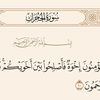 سورة الحجرات
بسم الله الرحمن الرحيم
مؤمنون إخوة فأصلحوا بين أخويكم
حمون